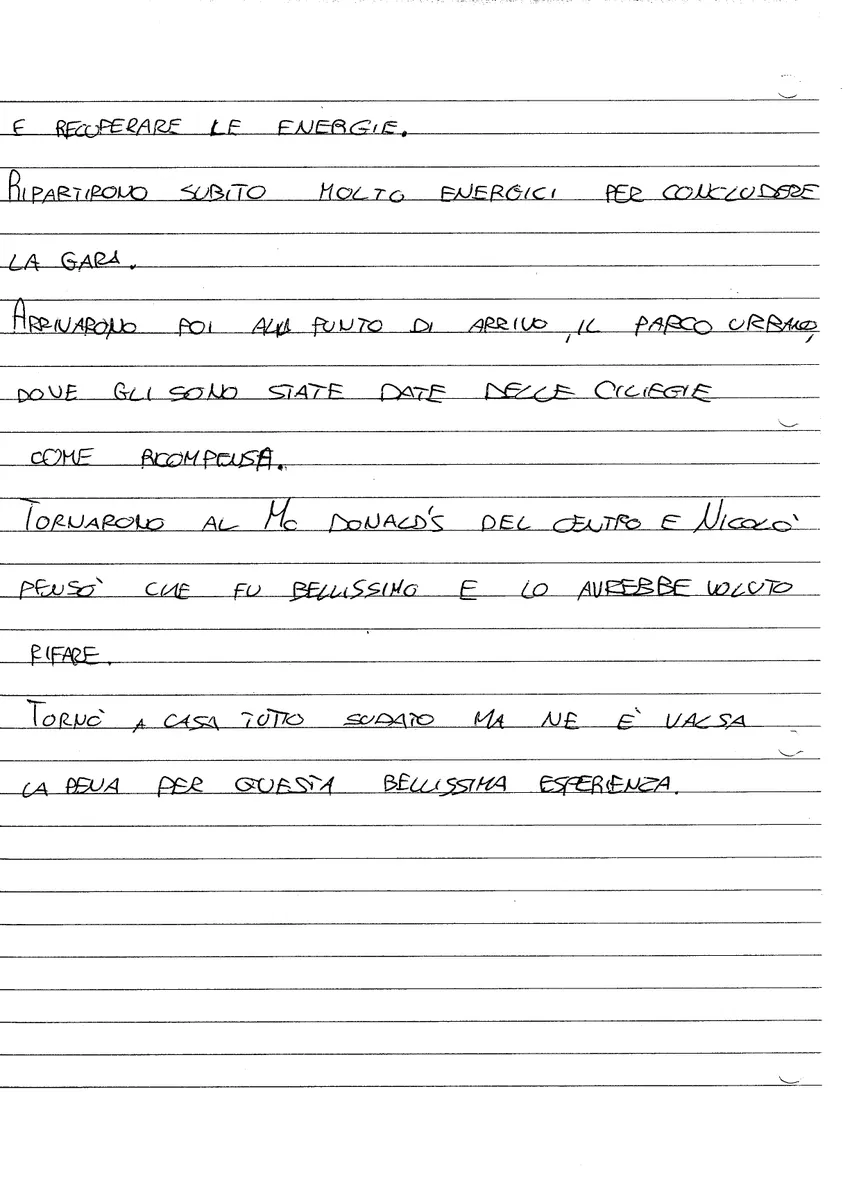 E RECUPERARE LE ENERGIE.
RIPARTIRONO SUBITO MOLTO ENERGICI PER CONCLUDERE
LA GARA.
ARRIVARONO POI AL PUNTO DI ARRIVO, IL PARCO URBANO,
DOVE GLI SONO STATE DATE DELLE CILIEGIE
COME RICOMPENSA.
TORNARONO AL MC DONALD'S DEL CENTRO E NICOLO'
PENSO' CHE FU BELLISSIMO E LO AVREBBE VOLUTO
RIFARE.
TORNO' A CASA TUTTO SUDATO MA NE E' VALSA
LA PENA PER QUESTA BELLISSIMA ESPERIENZA.